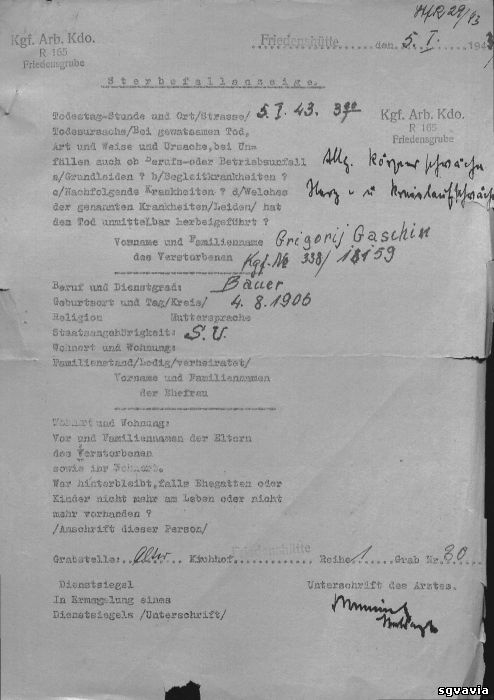 HfR 29/43
Kgf. Arb. Kdo.
R 165
Friedensgrube
Friedenshütte den 5. I. 1943
Sterbefallsanzeige.
Todestag-Stunde und Ort/Strasse/ 5. I. 43. 3
Todesursache/Bei gewatsamen Tod,
Art und Weise und Ursache, bei Un=
fällen auch ob Berufs-oder Betriebsunfall
a/Grundleiden ? b/Begleitkrankheiten ?
c/Nachfolgende Krankheiten ? d/Welches
der genannten Krankheiten/Leiden/ hat
den Tod unmittelbar herbeigeführt ?
Kgf. Arb. Kdo.
R 165
Friedensgrube
Allg. Körperschwäche
Herz - u Kreislaufschwäche
Vorname und Familienname Grigorij Gaschin
des Verstorbenen Kgf. No 338/ 18159
Beruf und Dienstgrad: Bauer
Geburtsort und Tag/Kreis/ 4. 8. 1906
Religion Muttersprache
Staatsangehörigkeit: S.U.
Wohnort und Wohnung:
Familienstand/Ledig/verheiratet/
Vorname und Familiennamen
der Ehefrau
Wohnort und Wohnung:
Vor und Familiennamen der Eltern
des Verstorbenen
sowie ihr Wohnort.
War hinterbleibt, falls Ehegatten oder
Kinder nicht mehr am Leben oder nicht
mehr vorhanden ?
/Anschrift dieser Person/
Grabstelle: Alter Kirchhof Friedenshütte Reihe 1 Grab Nr. 80
Dienstsiegel Unterschrift des Arztes.
In Ermagelung eines
Dienstsiegels /Unterschrift/
sgvavia